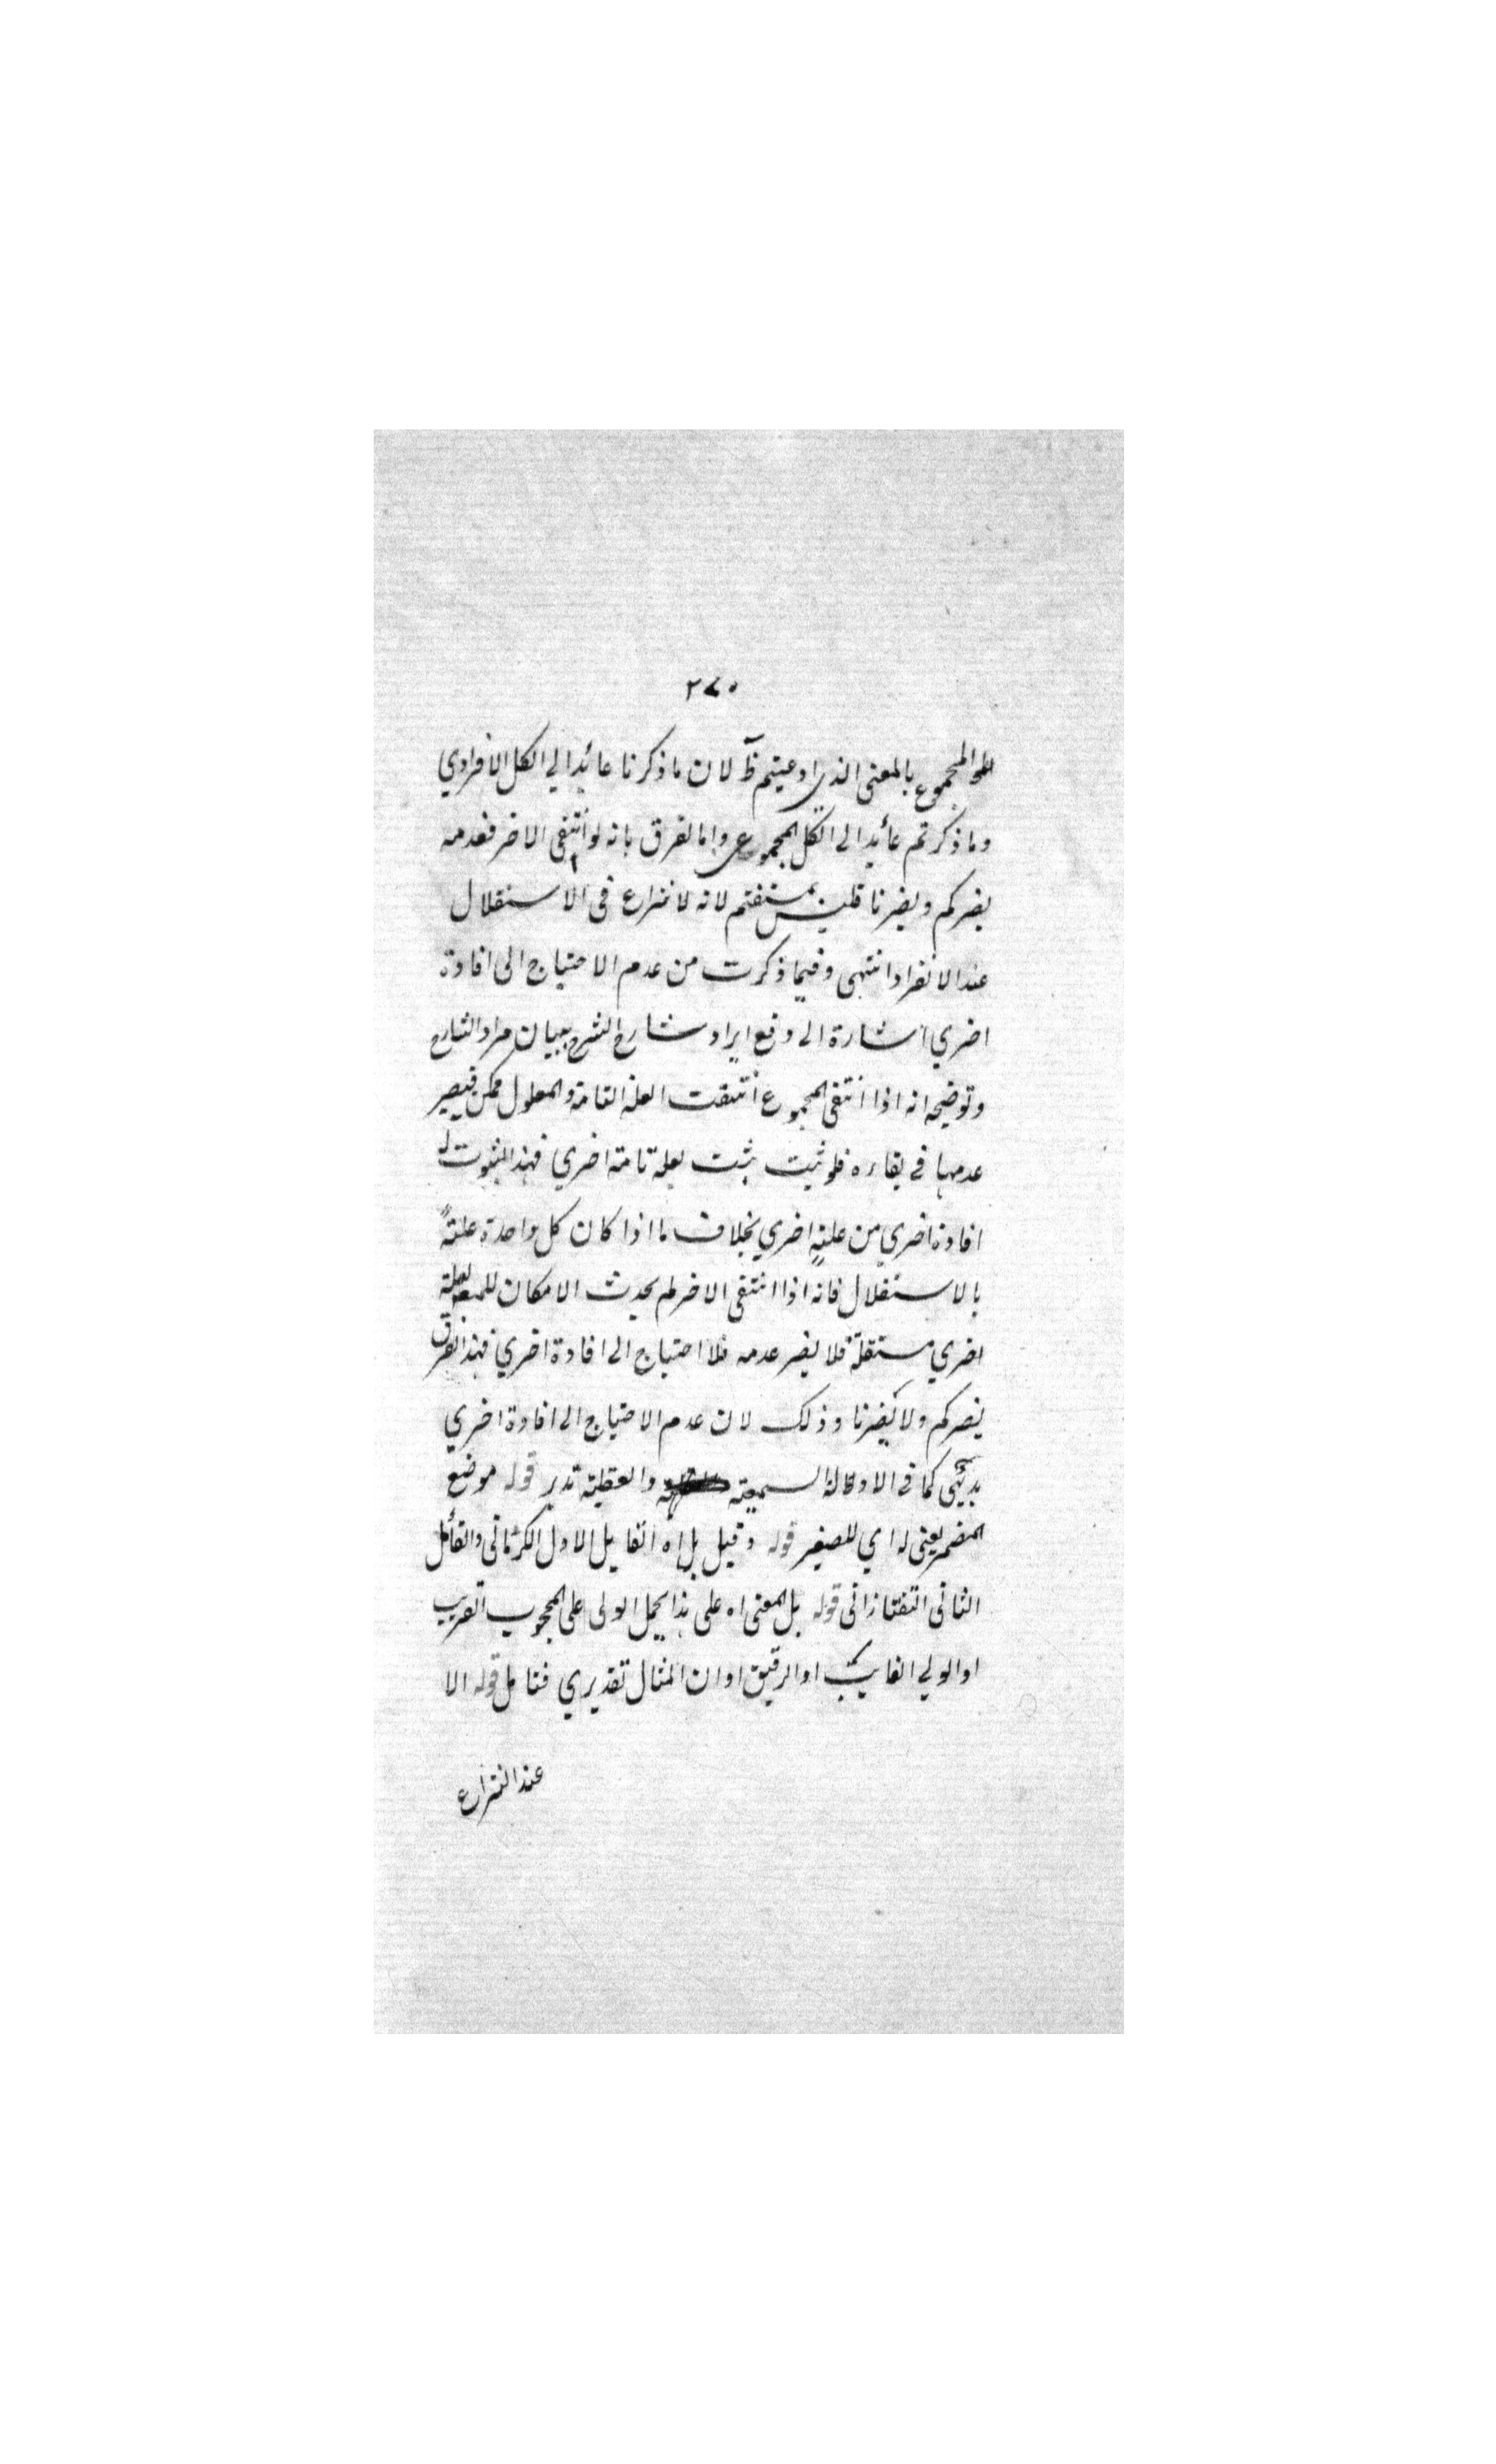 ٢٧٠
المجموع بالمعنى الذي ادعيتم ظ لان ما ذكرنا عائد الي الكل الافرادي
وما ذكرتم عائد الى الكل المجموعي واما الفرق بانه لو انتفى الاخر فعدمه
يضركم ويضرنا فليس لانه لا نزاع في الاستقلال
عند الانفراد انتهى وفيما ذكرت من عدم الاحتياج الى افادة
اخري اشارة الى دفع ايراد شارح الشرح ببيان مراد الشارح
وتوضيحه انه اذا انتفى المجموع انتفت العلة التامة والمعلول ممكن فيصير
عدمها في بقاءه فلو ثبت ثبت بعلة تامة اخري فهذا الثبوت له
افادة اخري من علة اخري بخلاف ما اذا كان كل واحدة علة
بالاستقلال فانه اذا انتفى الاخر لم يحدث الامكان
اخري مستقلة فلا يضر عدمه فلا احتياج الى افادة اخري فهذا الفرق
يضركم ولا يضرنا وذلك لان عدم الاحتياج الى افادة اخري
بديهي كما في الادلة السمعية والعقلية تدبر قوله موضع
المضمر يعني له اي للصغير قوله وقيل بل اه القايل الاول الكرماني والقائل
الثاني التفتازاني قوله بل المعنى اه على هذا يحمل الولى على المحجوب القريب
او الولي الغايب او الرقيق او ان المثال تقديري فتامل قوله الا
عند النزاع